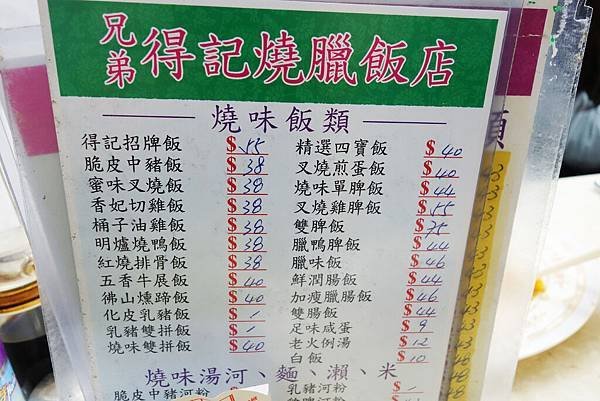 兄弟 得記燒臘飯店
燒味飯類
得記招牌飯 $55
脆皮中豬飯 $38
蜜味叉燒飯 $38
香妃切雞飯 $38
桶子油雞飯 $38
明爐燒鴨飯 $38
紅燒排骨飯 $38
五香牛展飯 $40
彿山燻蹄飯 $40
化皮乳豬飯 $1
乳豬雙拼飯 $1
燒味雙拼飯 $40
精選四寶飯 $40
叉燒煎蛋飯 $40
燒味單脾飯 $44
叉燒雞脾飯 $55
雙脾飯 $75
臘鴨脾飯 $44
臘味飯 $46
鮮潤腸飯 $44
加瘦臘腸飯 $46
雙腸飯 $44
足味咸蛋 $9
老火例湯 $12
白飯 $10
燒味湯河、麵、瀨、米
脆皮中豬河粉
乳豬河粉 $1
類